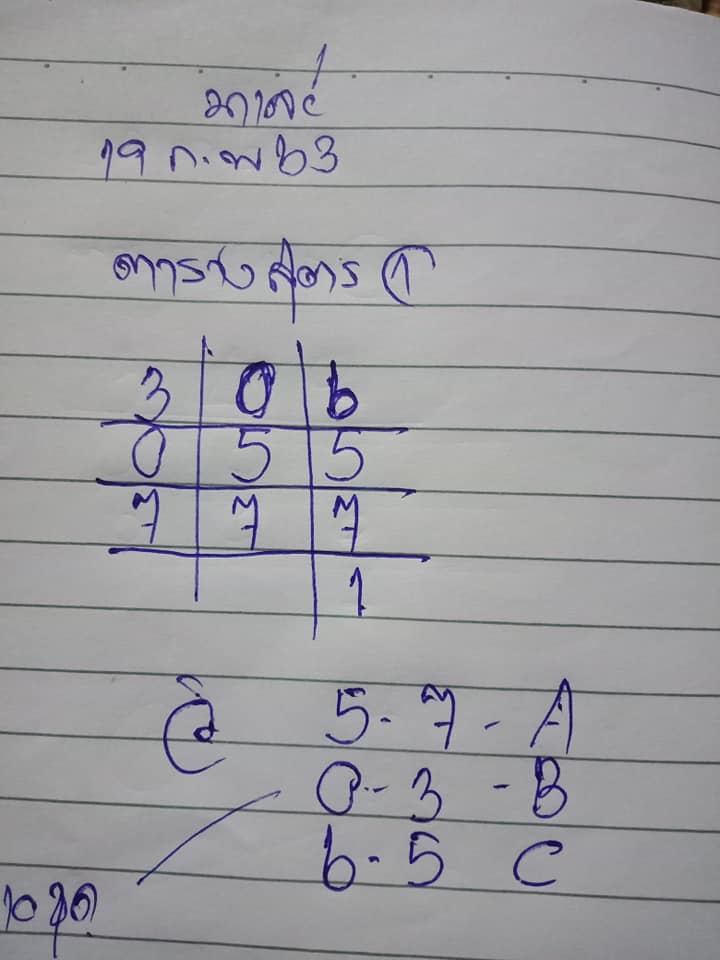 19 ก.พ 63
ตาราง สูตร 1
3 0 6
0 5 5
7 7 7
1
5-7-A
0-3-B
6-5 C
10 ชุด